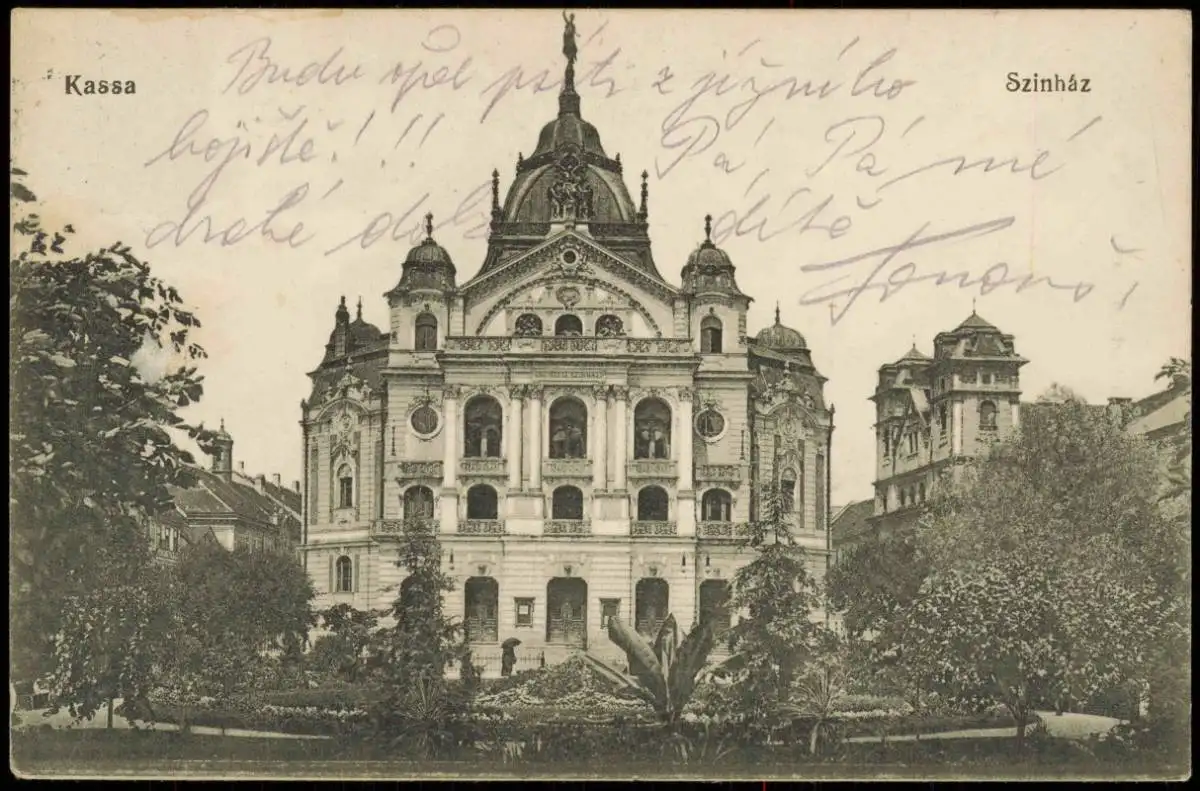 Kassa
Szinház
Budu opět psáti z jižního
bojiště!!! Pá Pá mé
drahé dítě